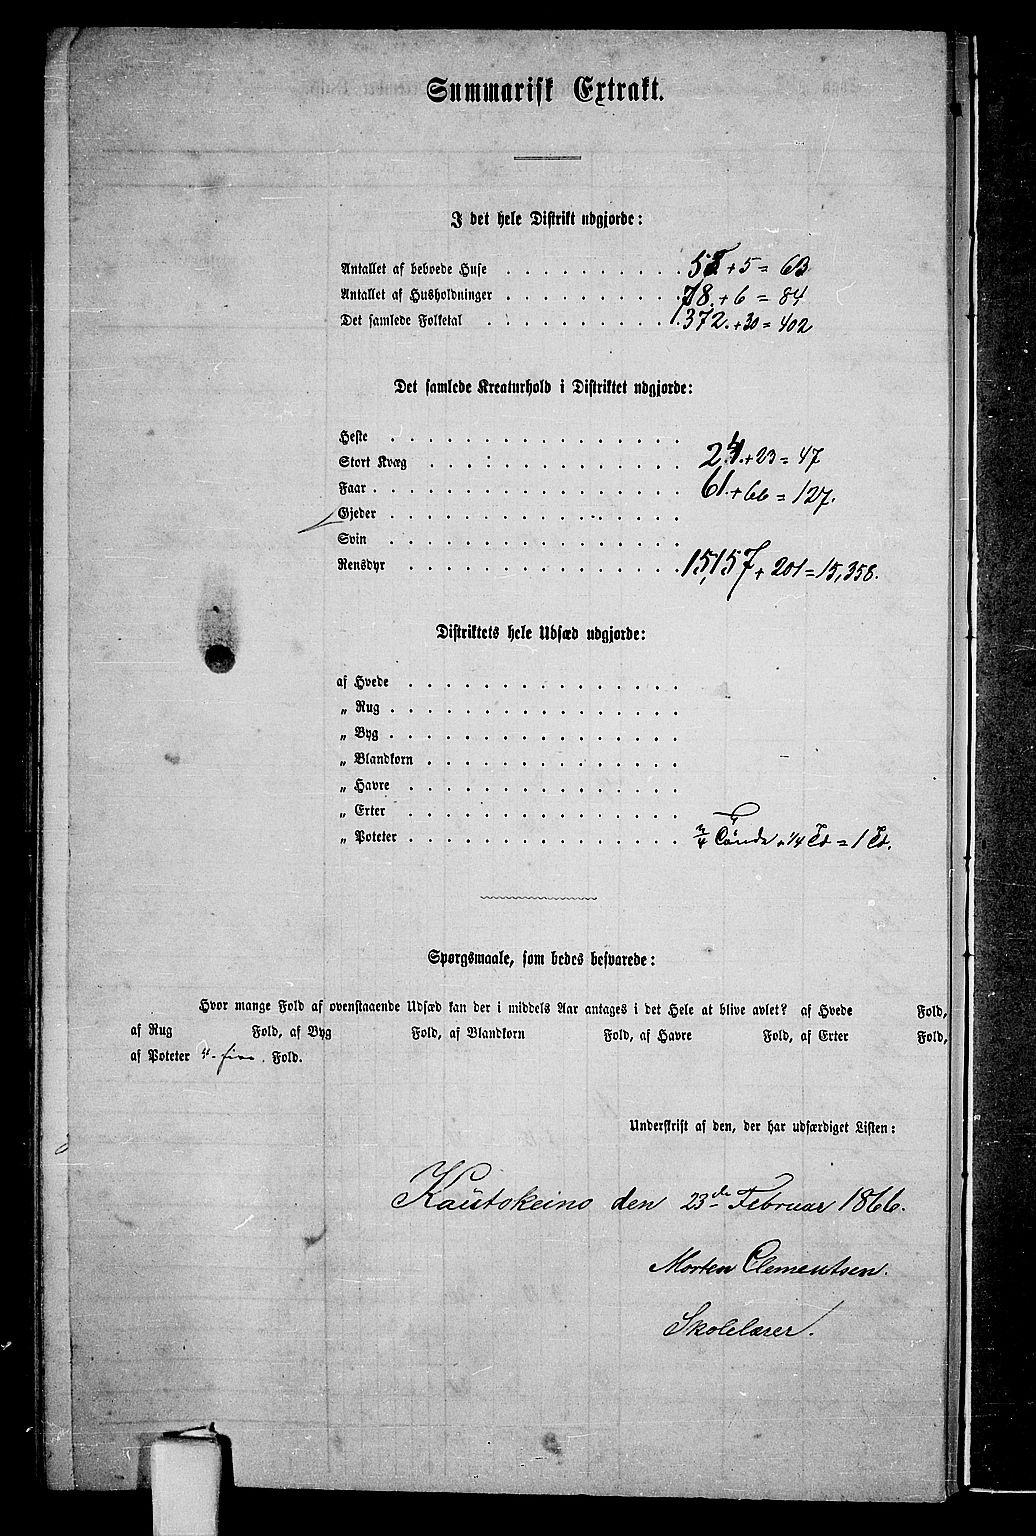 Summarisk Extrakt.
I det hele Distrikt udgjorde:
Antallet af beboede Huse . . . . . . . . . . 58 + 5 = 63
Antallet af Husholdninger . . . . . . . . . . 78. + 6 = 84
Det samlede Folketal . . . . . . . . . . . 372. + 30 = 402
Det samlede Kreaturhold i Distriktet udgjorde:
Heste . . . . . . . . . . . . . . . .
Stort Kvæg . . . . . . . . . . . . . . 24. + 23 = 47
Faar . . . . . . . . . . . . . . . . . 61. + 66 = 127.
Gjeder . . . . . . . . . . . . . . . .
Svin . . . . . . . . . . . . . . . .
Rensdyr . . . . . . . . . . . . . . . 15,157 + 201 = 15,358.
Distriktets hele Udsæd udgjorde:
af Hvede . . . . . . . . . . . . . . .
„ Rug . . . . . . . . . . . . . . . .
„ Byg . . . . . . . . . . . . . . . .
„ Blandkorn . . . . . . . . . . . . . .
„ Havre . . . . . . . . . . . . . . .
„ Erter . . . . . . . . . . . . . . .
„ Poteter . . . . . . . . . . . . . . . 3/4 Tønde + 1/4 Td = 1 Td.
Spørgsmaale, som bedes besvarede:
Hvor mange Fold af ovenstaaende Udsæd kan der i middels Aar antages i det Hele at blive avlet? af Hvede Fold,
af Rug Fold, af Byg Fold, af Blandkorn Fold, af Havre Fold, af Erter Fold,
af Poteter 4 - fire. Fold.
Underskrift af den, der har udfærdiget Listen:
Kautokeino den 23de Februar 1866.
Morten Clementsen.
Skolelærer.